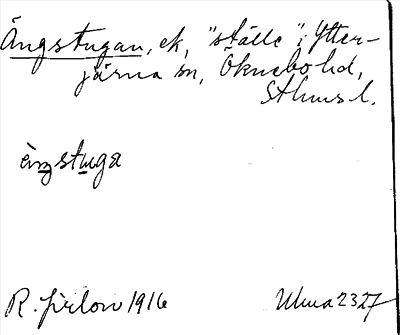 Ängstugan, ek, "ställe" i Ytter-
järna sn, Öknebo hd,
Sthms l.
ängstuga
R. Jirlow 1916
Ulma 2327